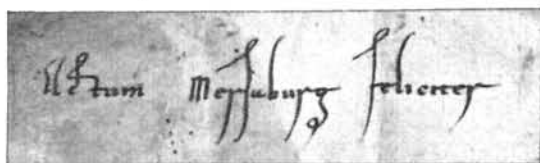 Actum Mersuburg feliciter